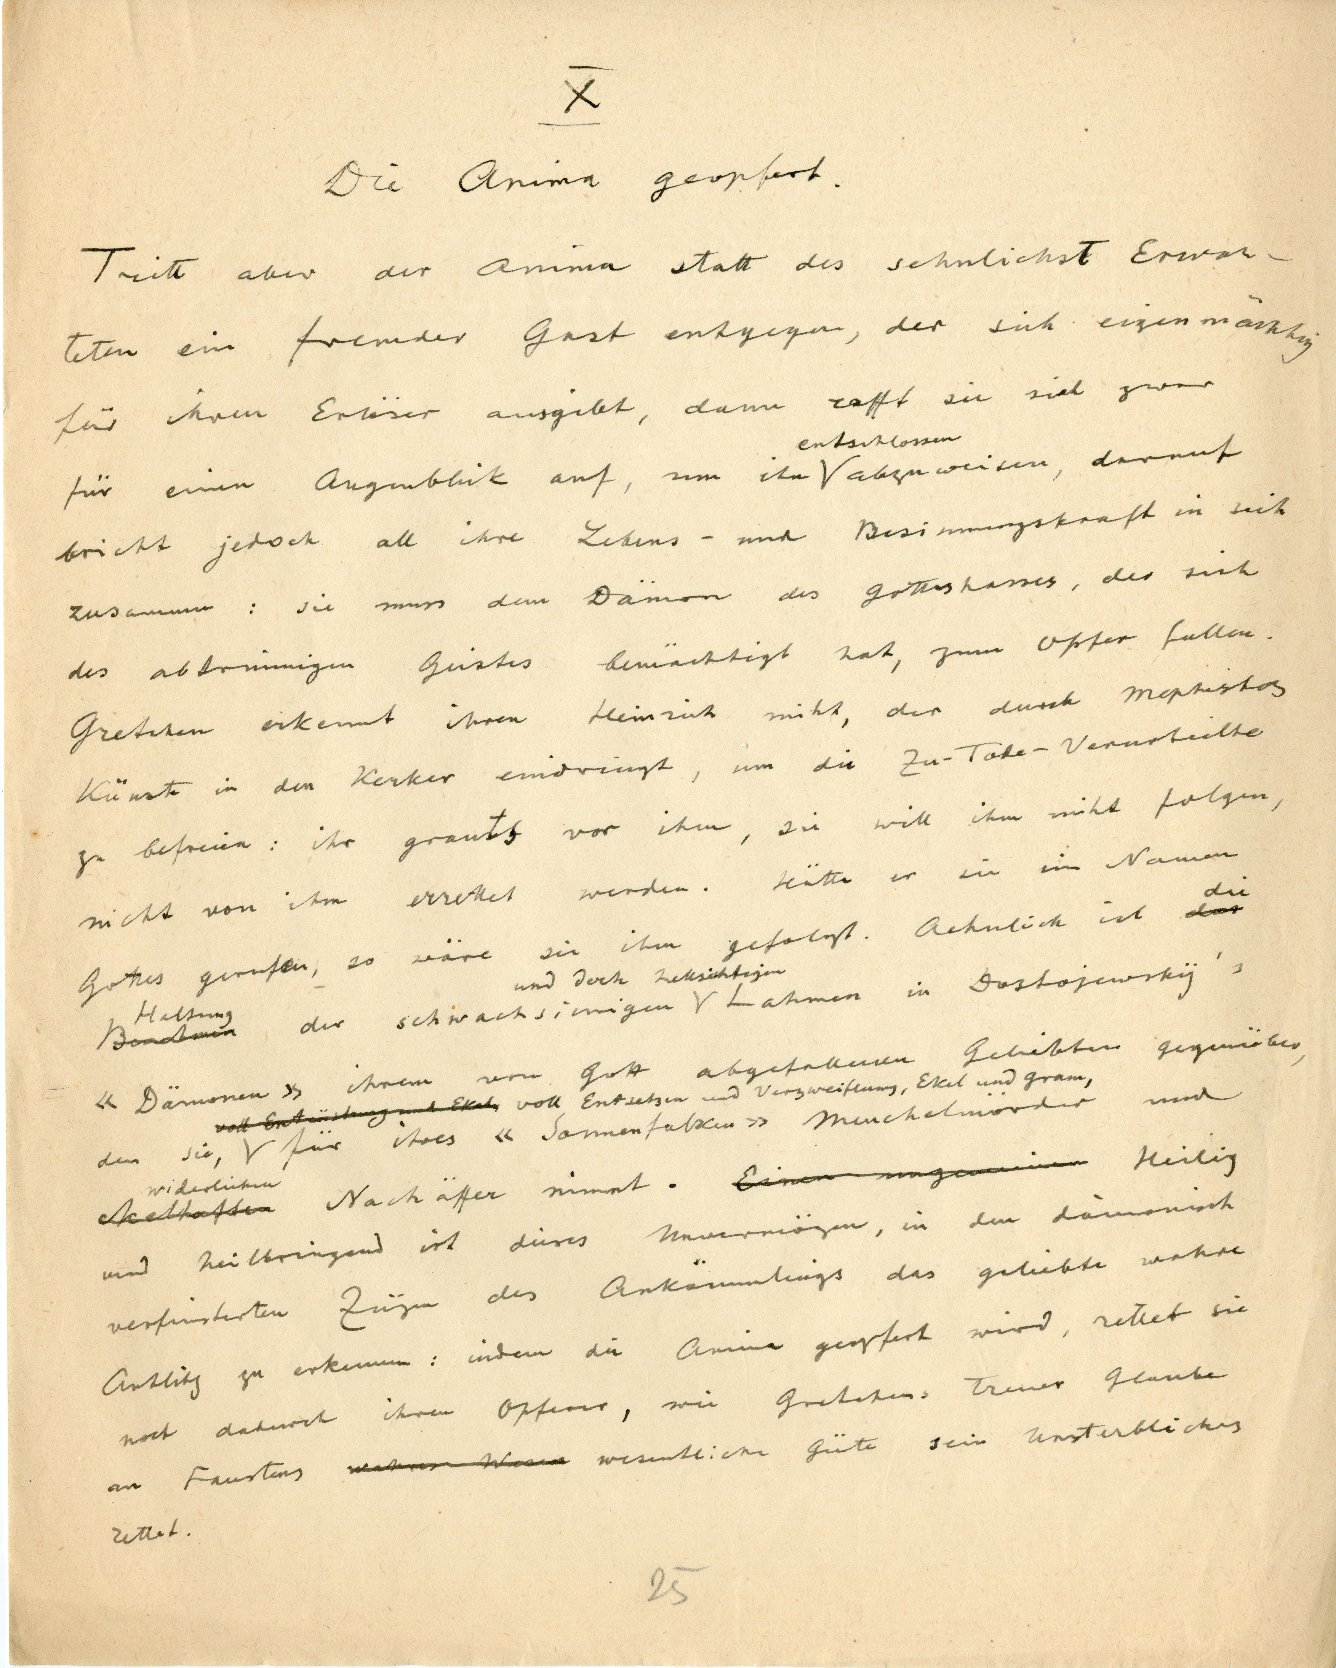 X
Die Anima geopfert.
Tritt aber der Anima statt des sehnlichst Erwar-
teten ein fremder Gast entgegen, der sich eigenmächtig
für ihren Erlöser ausgibt, dann rafft sie sich zwar
entschlossen
für einen Augenblick auf, um ihn V abzuweisen, darauf
bricht jedoch all ihre Lebens- und Besinnungskraft in sich
zusammen: sie muss dem Dämon des Gotteshasses, der sich
des abtrünnigen Geistes bemächtigt hat, zum Opfer fallen.
Gretchen erkennt ihren Heinrich nicht, der durch Mephistos
Künste in den Kerker eindringt, um die Zu-Tode-Verurteilte
zu befreien: ihr graut's vor ihm, sie will ihm nicht folgen,
nicht von ihm errettet werden. Hätte er sie im Namen
die
Gottes gerufen, so wäre sie ihm gefolgt. Aehnlich ist das
Haltung und doch hellsichtigen
Benehmen der schwachsinnigen V Lahmen in Dostojewskij's
« Dämonen » ihrem von Gott abgefallenen Geliebten gegenüber,
voll Entrüstung und Ekel, voll Entsetzen und Verzweiflung, Ekel und Gram,
den sie, V für ihres « Sonnenfalken » Meuchelmörder und
widerlichen
ekelhaften Nachäffer nimmt. Einen ungemeinen Heilig
und heilbringend ist dieses Unvermögen, in den dämonisch
verfinsterten Zügen des Ankömmlings das geliebte wahre
Antlitz zu erkennen: indem die Anima geopfert wird, rettet sie
noch dadurch ihren Opferer, wie Gretchens treuer Glaube
an Faustens wahres Wesen wesentliche Güte sein Unsterbliches
rettet.
25